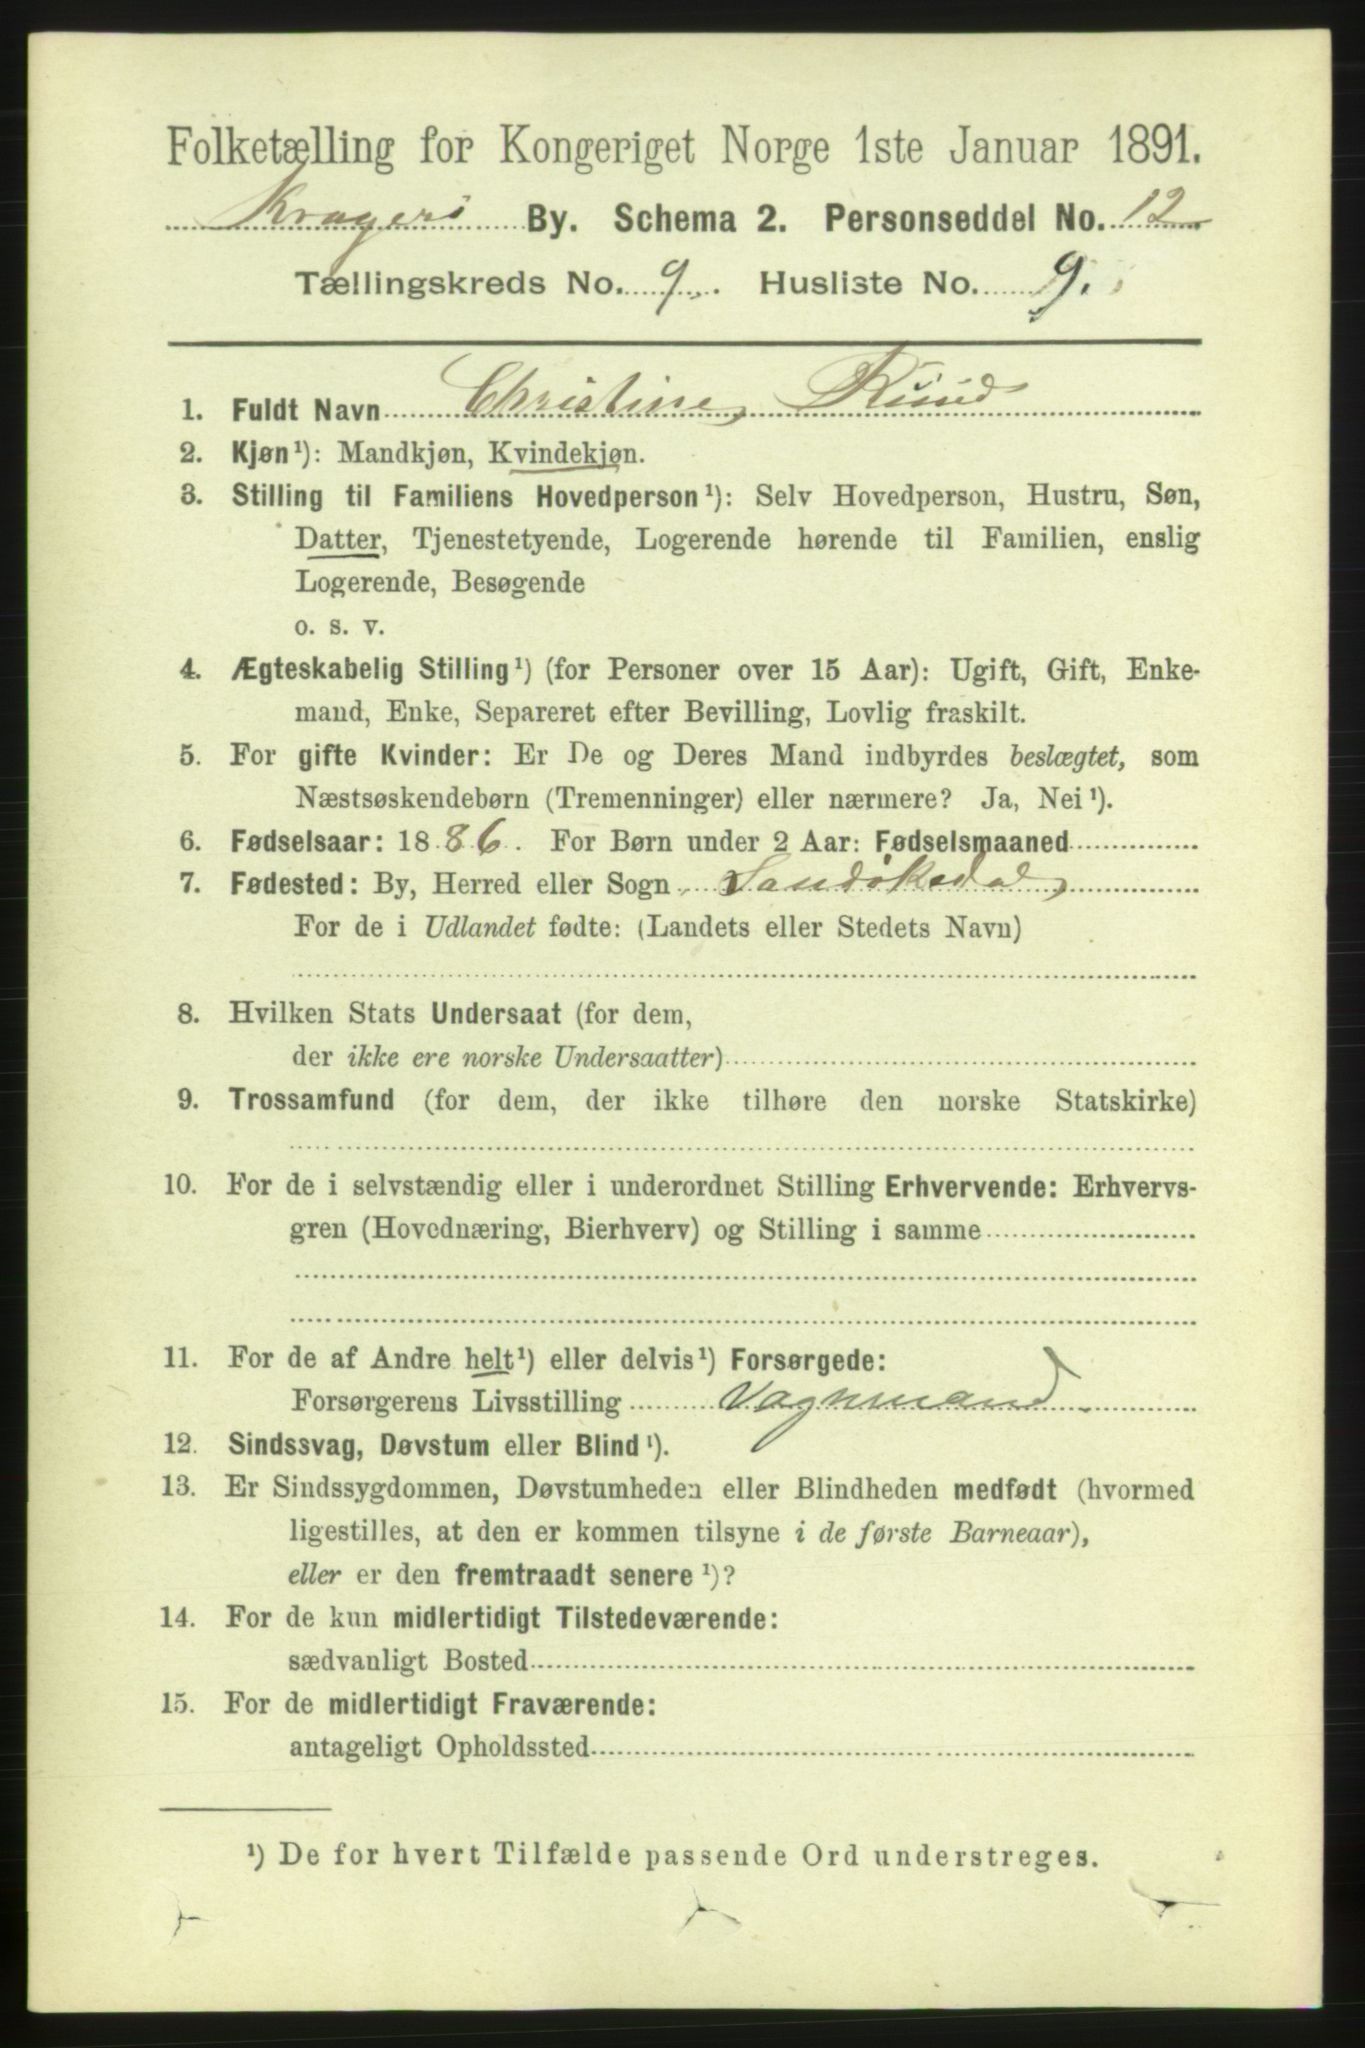 Folketælling for Kongeriget Norge 1ste Januar 1891.
Kragerö By. Schema 2. Personseddel No. 12
Tællingskreds No. 9. Husliste No. 9.
1. Fuldt Navn Christine Ruud
2. Kjøn¹): Mandkjøn, Kvindekjøn.
3. Stilling til Familiens Hovedperson¹): Selv Hovedperson, Hustru, Søn,
Datter, Tjenestetyende, Logerende hørende til Familien, enslig
Logerende, Besøgende
o. s. v.
4. Ægteskabelig Stilling¹) (for Personer over 15 Aar): Ugift, Gift, Enke-
mand, Enke, Separeret efter Bevilling, Lovlig fraskilt.
5. For gifte Kvinder: Er De og Deres Mand indbyrdes beslægtet, som
Næstsøskendebørn (Tremenninger) eller nærmere? Ja, Nei¹).
6. Fødselsaar: 1886. For Børn under 2 Aar: Fødselsmaaned
7. Fødested: By, Herred eller Sogn Sandökedal
For de i Udlandet fødte: (Landets eller Stedets Navn)
8. Hvilken Stats Undersaat (for dem,
der ikke ere norske Undersaatter)
9. Trossamfund (for dem, der ikke tilhøre den norske Statskirke)
10. For de i selvstændig eller i underordnet Stilling Erhvervende: Erhvervs-
gren (Hovednæring, Bierhverv) og Stilling i samme
11. For de af Andre helt¹) eller delvis¹) Forsørgede:
Forsørgerens Livsstilling Vognmand
12. Sindssvag, Døvstum eller Blind¹).
13. Er Sindssygdommen, Døvstumheden eller Blindheden medfødt (hvormed
ligestilles, at den er kommen tilsyne i de første Barneaar),
eller er den fremtraadt senere¹)?
14. For de kun midlertidigt Tilstedeværende:
sædvanligt Bosted
15. For de midlertidigt Fraværende:
antageligt Opholdssted
¹) De for hvert Tilfælde passende Ord understreges.